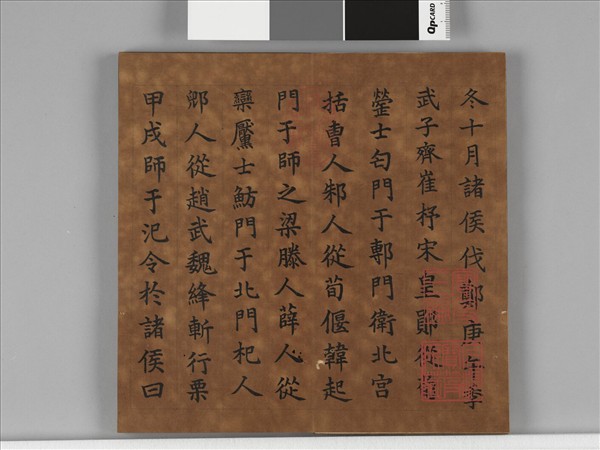 冬十月諸侯伐鄭庚午季
武子齊崔杼宋皇鄖從荀
罃士匄門于鄟門衛北宮
括曹人邾人從荀偃韓起
門于師之梁滕人薛人從
欒黶士魴門于北門杞人
郳人從趙武魏絳斬行栗
甲戌師于氾令於諸侯曰
QPCARD